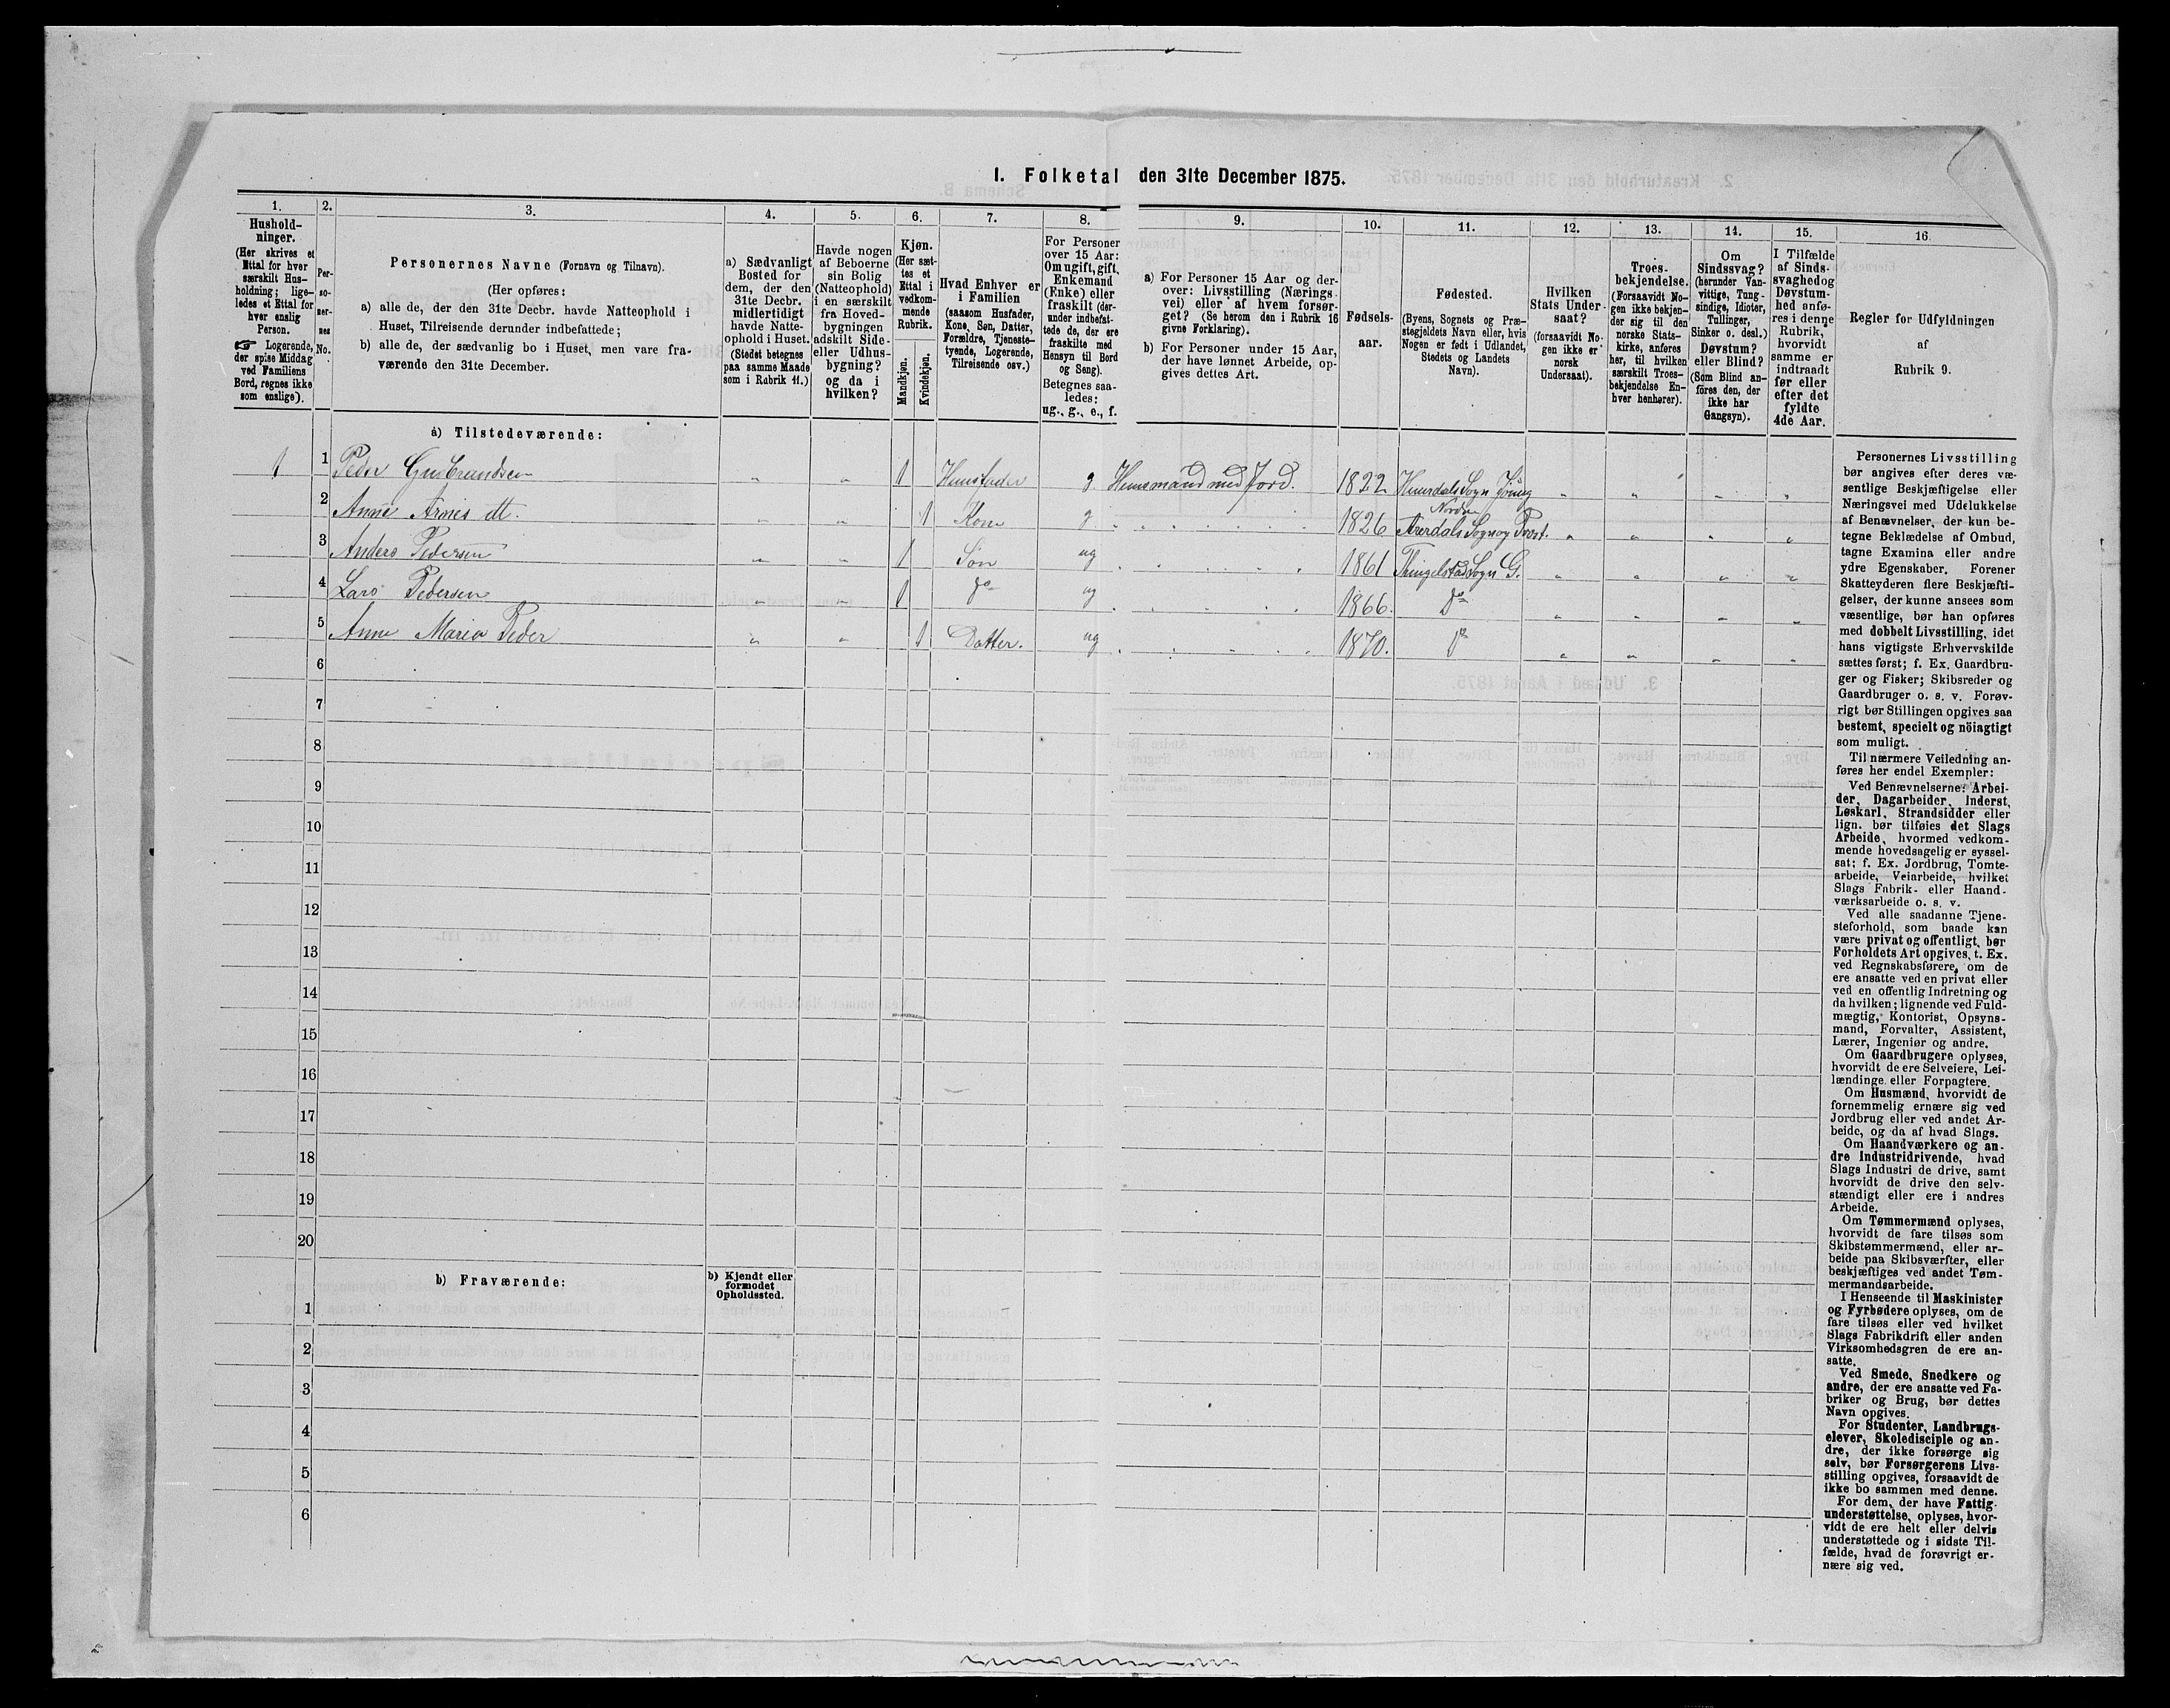 I. Folketal den 31te December 1875.
1.
Hushold-
ninger.
(Her skrives et
Ettal for hver
særskilt Hus-
holdning; lige-
ledes et Ettal for
hver enslig
Person.
☞ Logerende,
der spise Middag
ved Familiens
Bord, regnes ikke
som enslige).
2.
Per-
so-
ner-
nes
No.
3.
Personernes Navne (Fornavn og Tilnavn).
(Her opføres:
a) alle de, der den 31te Decbr. havde Natteophold i
Huset, Tilreisende derunder indbefattede;
b) alle de, der sædvanlig bo i Huset, men vare fra-
værende den 31te December.
4.
a) Sædvanligt
Bosted for
dem, der den
31te Decbr.
midlertidigt
havde Natte-
ophold i Huset.
(Stedet betegnes
paa samme Maade
som i Rubrik 11.)
5.
Havde nogen
af Beboerne
sin Bolig
(Natteophold)
i en særskilt
fra Hoved-
bygningen
adskilt Side-
eller Udhus-
bygning?
og da i
hvilken?
6.
Kjøn.
(Her sæt-
tes et
Ettal i
vedkom-
mende
Rubrik.
Mandkjøn.
Kvindekjøn.
7.
Hvad Enhver er
i Familien
(saasom Husfader,
Kone, Søn, Datter,
Forældre, Tjeneste-
tyende, Logerende,
Tilreisende osv.)
8.
For Personer
over 15 Aar:
Omugift, gift,
Enkemand
(Enke) eller
fraskilt (der-
under indbefat-
tede de, der ere
fraskilte med
Hensyn til Bord
og Seng).
Betegnes saa-
ledes:
ug., g., e., f.
9.
a) For Personer 15 Aar og der-
over: Livsstilling (Nærings-
vei) eller af hvem forsør-
get? (Se herom den i Rubrik 16
givne Forklaring).
b) For Personer under 15 Aar,
der have lønnet Arbeide, op-
gives dettes Art.
10.
Fødsels-
aar.
11.
Fødested.
(Byens, Sognets og Præ-
stegjeldets Navn eller, hvis
Nogen er født i Udlandet,
Stedets og Landets
Navn).
12.
Hvilken
Stats Under-
saat?
(forsaavidt No-
gen ikke er
norsk
Undersaat).
13.
Troes-
bekjendelse.
(Forsaavidt No-
gen ikke bekjen-
der sig til den
norske Stats-
kirke, anføres
her, til hvilken
særskilt Troes-
bekjendelse En-
hver henhører).
14.
Om
Sindssvag?
(herunder Van-
vittige, Tung-
sindige, Idioter,
Tullinger,
Sinker o. desl.)
Døvstum?
eller Blind?
(Som Blind an-
föres den, der
ikke har
Gangsyn).
15.
I Tilfælde
af Sinds-
svaghed og
Døvstum-
hed anfø-
res i denne
Rubrik,
hvorvidt
samme er
indtraadt
før eller
efter det
fyldte
4de Aar.
16.
Regler for Udfyldningen
af
Rubrik 9.
a) Tilstedeværende:
1 1 Peder Gulbrandsen " " 1 Huusfader g. Huusmand med Jord. 1822 Hurdals Sogn " " " "
2 Anne Arnes dt. " " 1 Kone g. 1826 Nordre Aurdals Sogn og Præst. " " " "
3 Anders Pedersen " " 1 Søn ug 1861 Thingelstad Sogn G. " " " "
4 Lars Pedersen " " 1 do ug 1866. do " " " "
5 Anne Maria Peder " " 1 Datter. ug 1870. do " " " "
6
7
8
9
10
11
12
13
14
15
16
17
18
19
20
b) Fraværende:
b) Kjendt eller
formodet
Opholdssted.
1
2
3
4
5
6
Personernes Livsstilling
bør angives efter deres væ-
sentlige Beskjæftigelse eller
Næringsvei med Udelukkelse
af Benævnelser, der kun be-
tegne Beklædelse af Ombud,
tagne Examina eller andre
ydre Egenskaber. Forener
Skatteyderen flere Beskjæfti-
gelser, der kunne ansees som
væsentlige, bør han opføres
med dobbelt Livsstilling, idet
hans vigtigste Erhvervskilde
sættes først; f. Ex. Gaardbru-
ger og Fisker; Skibsreder og
Gaardbruger o. s. v. Forøv-
rigt bør Stillingen opgives saa
bestemt, specielt og nöiagtigt
som muligt.
Til nærmere Veiledning an-
føres her endel Exempler:
Ved Benævnelserne: Arbei-
der, Dagarbeider, Inderst,
Løskarl, Strandsidder eller
lign. bør tilføies det Slags
Arbeide, hvormed vedkom-
mende hovedsagelig er syssel-
sat; f. Ex. Jordbrug, Tomte-
arbeide, Veiarbeide, hvilket
Slags Fabrik- eller Haand-
værksarbeide o. s. v.
Ved alle saadanne Tjene-
steforhold, som baade kan
være privat og offentligt, bør
Forholdets Art opgives, t. Ex.
ved Regnskabsførere, om de
ere ansatte ved en privat eller
ved en offentlig Indretning og
da hvilken; lignende ved Fuld-
mægtig, Kontorist, Opsyns-
mand, Forvalter, Assistent,
Lærer, Ingeniør og andre.
Om Gaardbrugere oplyses,
hvorvidt de ere Selveiere, Lei-
lændinge eller Forpagtere.
Om Husmænd, hvorvidt de
fornemmelig ernære sig ved
Jordbrug eller ved andet Ar-
beide, og da af hvad Slags.
Om Haandværkere og an-
dre Industridrivende, hvad
Slags Industri de drive, samt
hvorvidt de drive den selv-
stændigt eller ere i andres
Arbeide.
Om Tømmermænd oplyses,
hvorvidt de fare tilsøs som
Skibstømmermænd, eller ar-
beide paa Skibsværfter, eller
beskjæftiges ved andet Tøm-
mermandsarbeide.
I Henseende til Maskinister
og Fyrbødere oplyses, om de
fare tilsøs eller ved hvilket
Slags Fabrikdrift eller anden
Virksomhedsgren de ere an-
satte.
Ved Smede, Snedkere og
andre, der ere ansatte ved Fa-
briker og Brug, bør dettes
Navn opgives.
For Studenter, Landbrugs-
elever, Skoledisciple og an-
dre, der ikke forsørge sig
selv, bør Forsørgerens Livs-
stilling opgives, forsaavidt de
ikke bo sammen med denne.
For dem, der have Fattig-
understøttelse, oplyses, hvor-
vidt de ere helt eller delvis
understøttede og i sidste Til-
fælde, hvad de forøvrigt er-
nære sig ved.